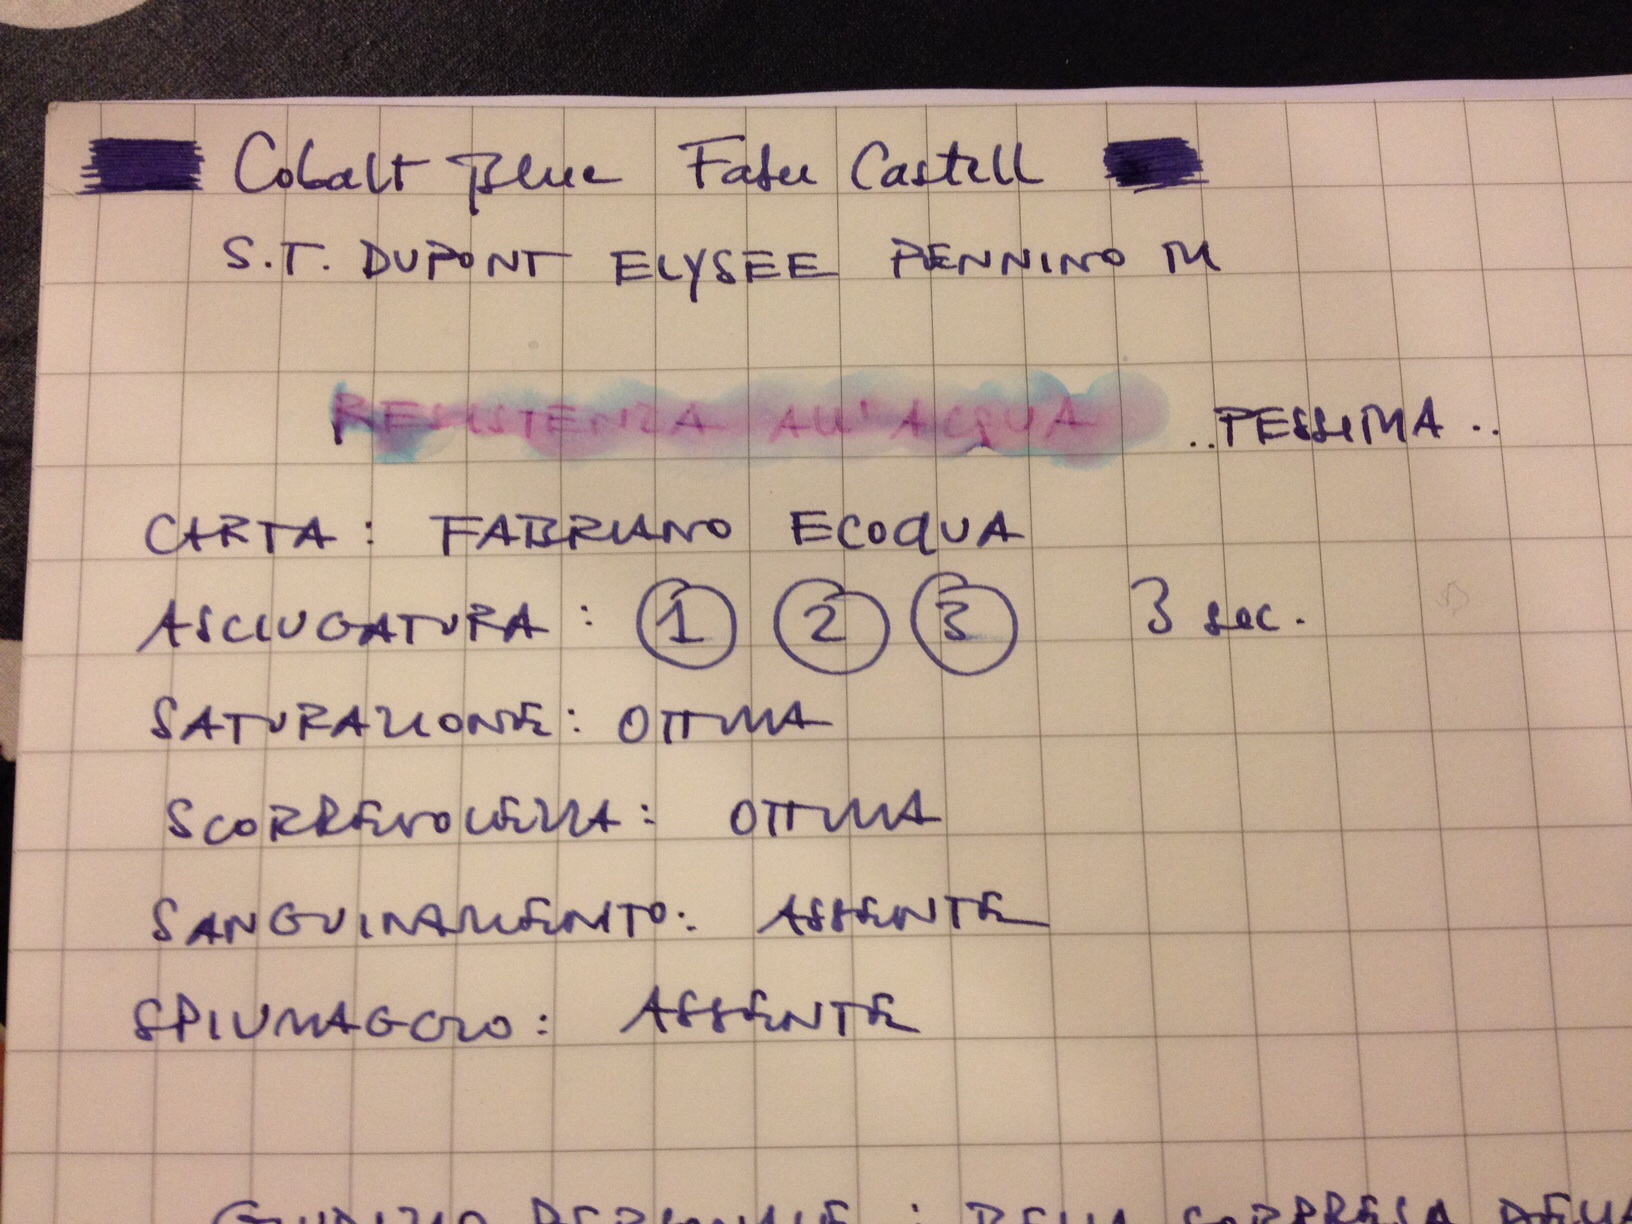 Cobalt Blue Faber Castell
S.T. DUPONT ELYSEE PENNINO M
RESISTENZA ALL'ACQUA ..PESSIMA..
CARTA: FABRIANO ECOQUA
ASCIUGATURA: 1 2 3 3 sec.
SATURAZIONE: OTTIMA
SCORREVOLEZZA: OTTIMA
SANGUINAMENTO: ASSENTE
SPIUMAGGIO: ASSENTE
GIUDIZIO PERSONALE: BELLA SORPRESA